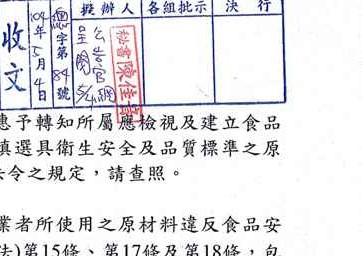 擬辦人 各組批示 決行
收文
104年5月4日
總字第84號
呈閱
公告官網
5/4
秘書陳佳
惠予轉知所屬應檢視及建立食品
慎選具衛生安全及品質標準之原
法令之規定，請查照。
業者所使用之原材料違反食品安
法)第15條、第17條及第18條，包